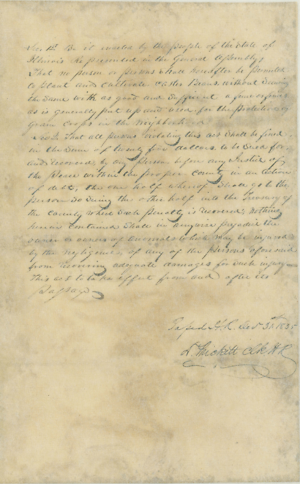 Sec. 1st Be it enacted by the people of the State of
Illinois represented in the General Assembly
That no person or persons shall hereafter be permitted
to plant and cultivate Castor Beans without Securing
the same with as good and Sufficient a fence
as is generally put up and used for the protection of
grain crops in the neighborhood
That all persons violating this act shall be fined
in the Sum of twenty five dollars to be Sued for
and recovered by any person before any Justice of
the peace within the proper county in an action
of debt, the one half whereof Shall go to the
person So Suing the other half into the Treasury of
the County where Such penalty is recovered Nothing
herein Contained Shall in anywise prejudice the
owner or owners of animals which may be injured
by the negligence of any of the persons aforesaid
from recovering adequate damages for Such injury
This act to take effect from and after its
Passage
Passed H.R.